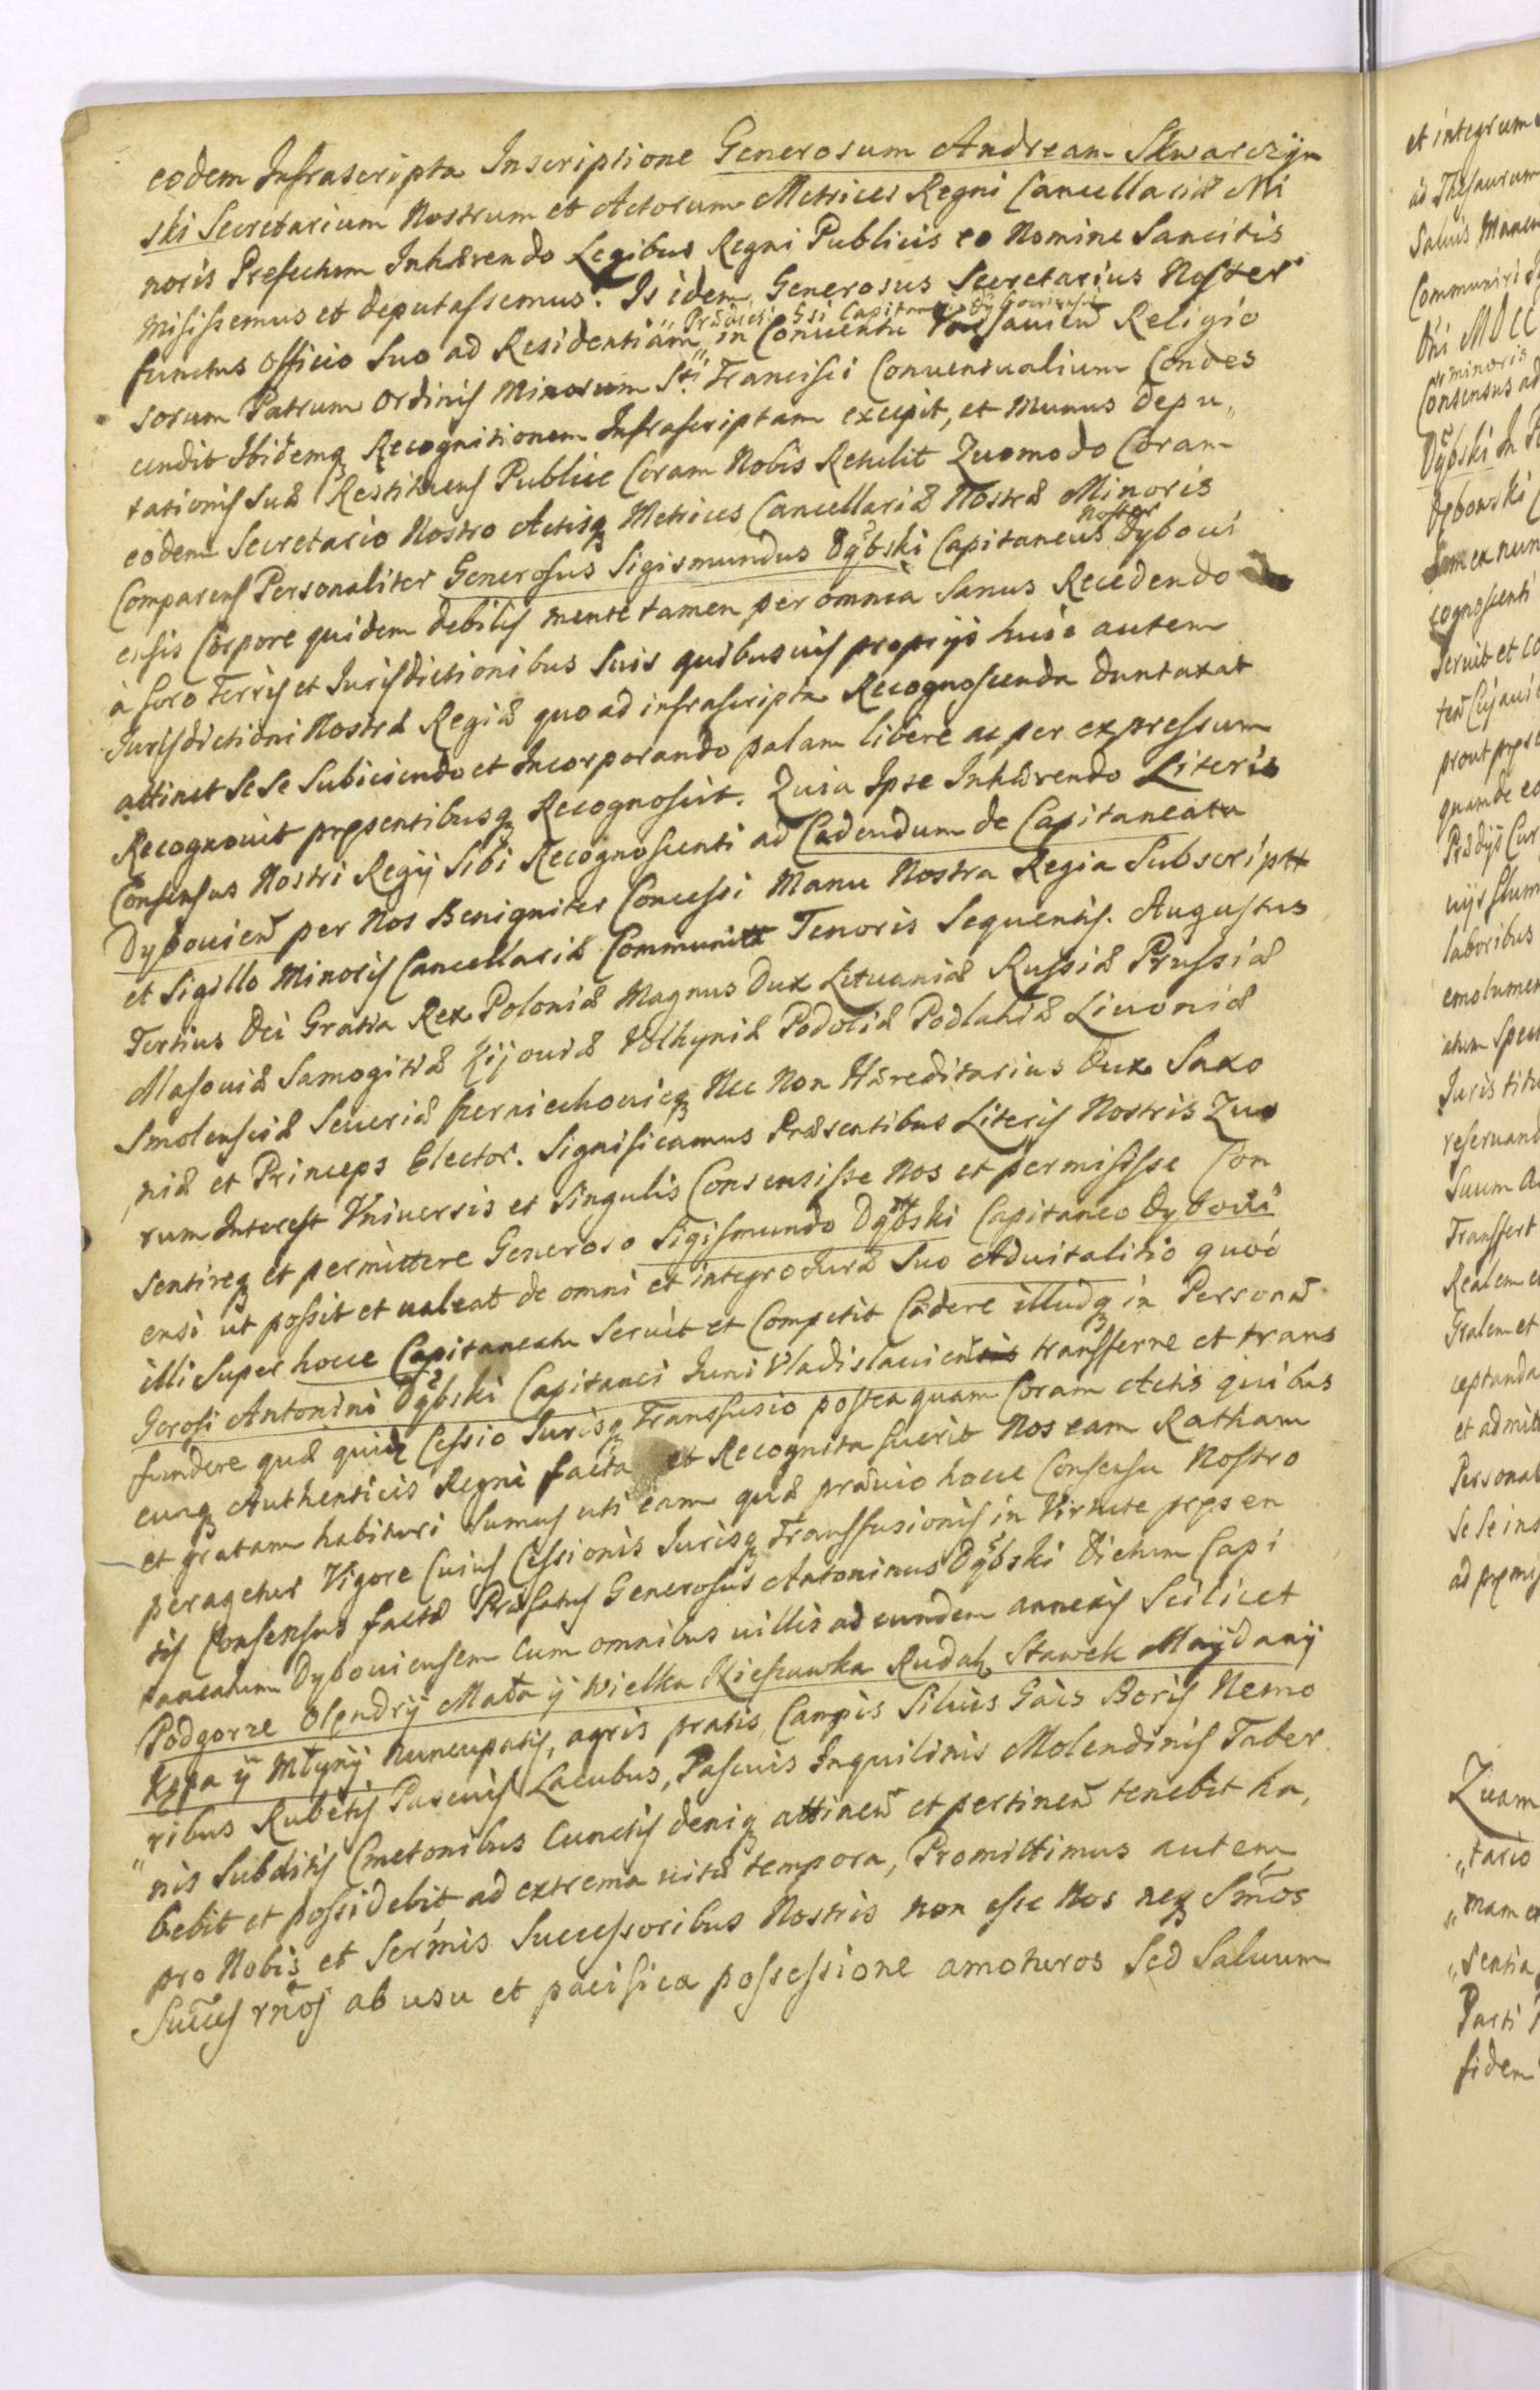 eodem Infrascripta Inscriptione Generosum Andream Skwarczÿn
ski Secretarium Nostrum et Actorum Metrices Regni Cancellariæ Mi
noris Prefectum Inhærendo Legibus Regni Publicis eo Nomine Sancitis
misissemus et deputassemus. Is idem Generosus Secretarius Noster
Prædicti Gsi Capitanei Dybouiensis
functus officio Suo ad Residentiam in Conuentu Varsauien Religio
sorum Patrum Ordinis Minorum Sti Francisci Conuentualium Condes
cendit Ibidemq Recognitionem Infrascriptam excepit, et Munus Depu„
tationis Suæ Restituens Publice Coram Nobis Retulit Quomodo Coram
eodem Secretario Nostro Actisq Metrices Cancellariæ Nostræ Minoris
Comparens Personaliter Generosus Sigismundus Dąbski Capitaneus Noster Dyboui
ensis Corpore quidem debilis mente tamen per omnia Sanus Recedendo
à foro Terris et Iurisdictionibus Suis quibusuis proprijs huic autem
Iurisdictioni Nostræ Regiæ quo ad infrascripta Recognoscenda duntaxat
attinet Se Se Subiiciendo et Incorporando palam libere ac per expressum
Recognouit pręsentibusq Recognoscit. Quia Ipse Inhærendo Literis
Consensus Nostri Regij Sibi Recognoscenti ad Cedendum de Capitaneatu
Dybouien per Nos Benigniter Concessi Manu Nostra Regia Subscriptt
et Sigillo Minoris Cancellariæ Communitt Tenoris Sequentis. Augustus
Tertius Dei Gratia Rex Poloniæ Magnus Dux Lituaniæ Russiæ Prussiæ
Masouiæ Samogitiæ Kijouiæ Volhyniæ Podoliæ Podlahiæ Liuoniæ
Smolensciæ Seueriæ Czerniechouięq Nec Non Hæreditarius Dux Saxo
niæ et Princeps Elector. Significamus Præsentibus Literis Nostris Quo
rum Interest Vniuersis et Singulis Consensisse Nos et permisisse Con
sentireq et permittere Generoso Sigismundo Dąbski Capitaneo Dyboui
ensi ut possit et ualeat de omni et integro Iure Suo Aduitalitio quod
illi Super hocce Capitaneatu Seruit et Competit Cedere illudq in Personam
Gerosi Antonini Dąbski Capitanei Iuni Vladislauien transferre et trans
fundere quæ quidem Cessio Iurisq Transfusio postea quam Coram Actis quibus
cunq Authenticis Regni facta et Recognita fuerit Nos eam Ratham
et gratam habituri Sumus uti eam quæ præuio hocce Consensu Nostro
peragetur Vigore Cuius Cessionis Iurisq Transfusionis in Virtute pręsen
tis Consensus factæ Præfatus Generosus Antoninus Dąbski Dictum Capi
taneatum Dybouiensem Cum omnibus uillis ad eundem annexis Scilicet
Podgorze Olędrÿ Mała ÿ Wielka Kieszuwka Rudak Stawek Maÿdanÿ
Kępa ÿ Młÿnÿ Nuncupatis, agris pratis Campis Siluis Gais Boris Nemo
„ribus Rubetis Pascuis Lacubus, Pascuis Inquilinis Molendinis Taber
nis Subditis Cmetonibus Cunctis deniq attinen et pertinen tenebit ha,
bebit et possidebit ad extrema uitæ tempora, Promittimus autem
pro Nobis et Sermis Successoribus Nostris non esse Nos neq Smos
Succes rnos ab usu et pacifica possessione amoturos Sed Saluum